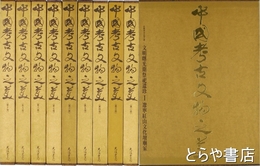 中國考古文物之美
中國考古文物之美
中國考古文物之美
中國考古文物之美
中國考古文物之美
中國考古文物之美
中國考古文物之美
中國考古文物之美
中國考古文物之美
文明曙光期祭祀遺珍
遼寧紅山文化壇廟冢
とらや書店